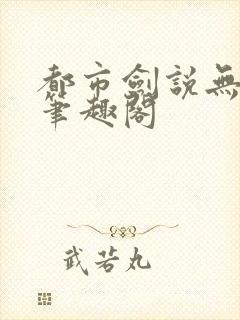 都市劍説無
筆趣閣
武若丸